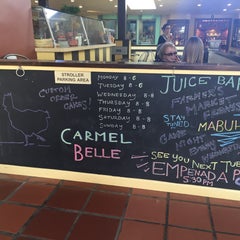 STROLLER
PARKING AREA
CUSTOM
ORDER
CAKES!
MONDAY 8-6
TUESDAY 8-6
WEDNESDAY 8-8
THURSDAY 8-8
FRIDAY 8-8
SATURDAY 8-8
SUNDAY 8-8
CARMEL
BELLE
JUICE BAR
FARMER'S
STAY
TUNED
GAME
NIGHT
MABUH
SEE YOU NEXT TUE
EMPENADA
5:30 PM